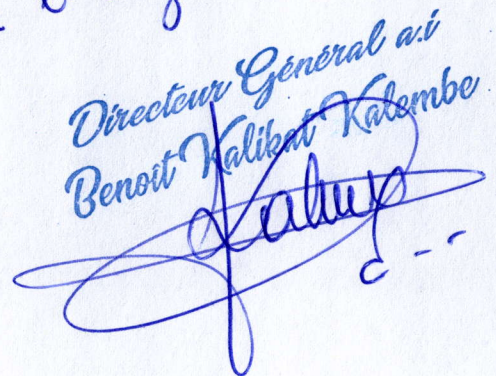 Directeur Général a.i
Benoit Kalikat Kalembe